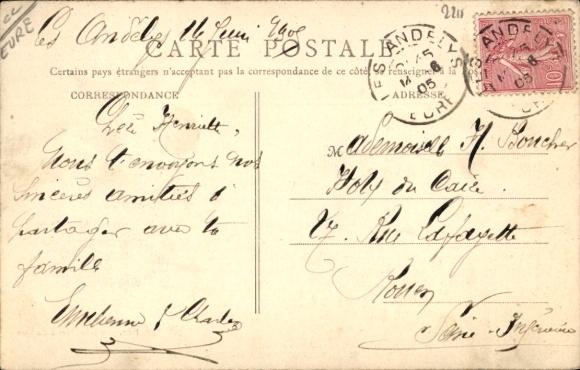 EURE
Les Andelys 14 Juin 1905
CARTE POSTALE
Certains pays étrangers n'acceptant pas la correspondance de ce côté, se renseigner à la
220
LES ANDELYS
14 6
05
EURE
LES ANDELYS
6
05
EURE
10
CORRESPONDANCE
ADRESSE
Henriette,
Nous t'envoyons nos
sincères amitiés à
partager avec ta
famille
Charles
Mademoiselle H. Boucher
du Caire.
17. Rue Lafayette
Rouen
Seine-Inférieure